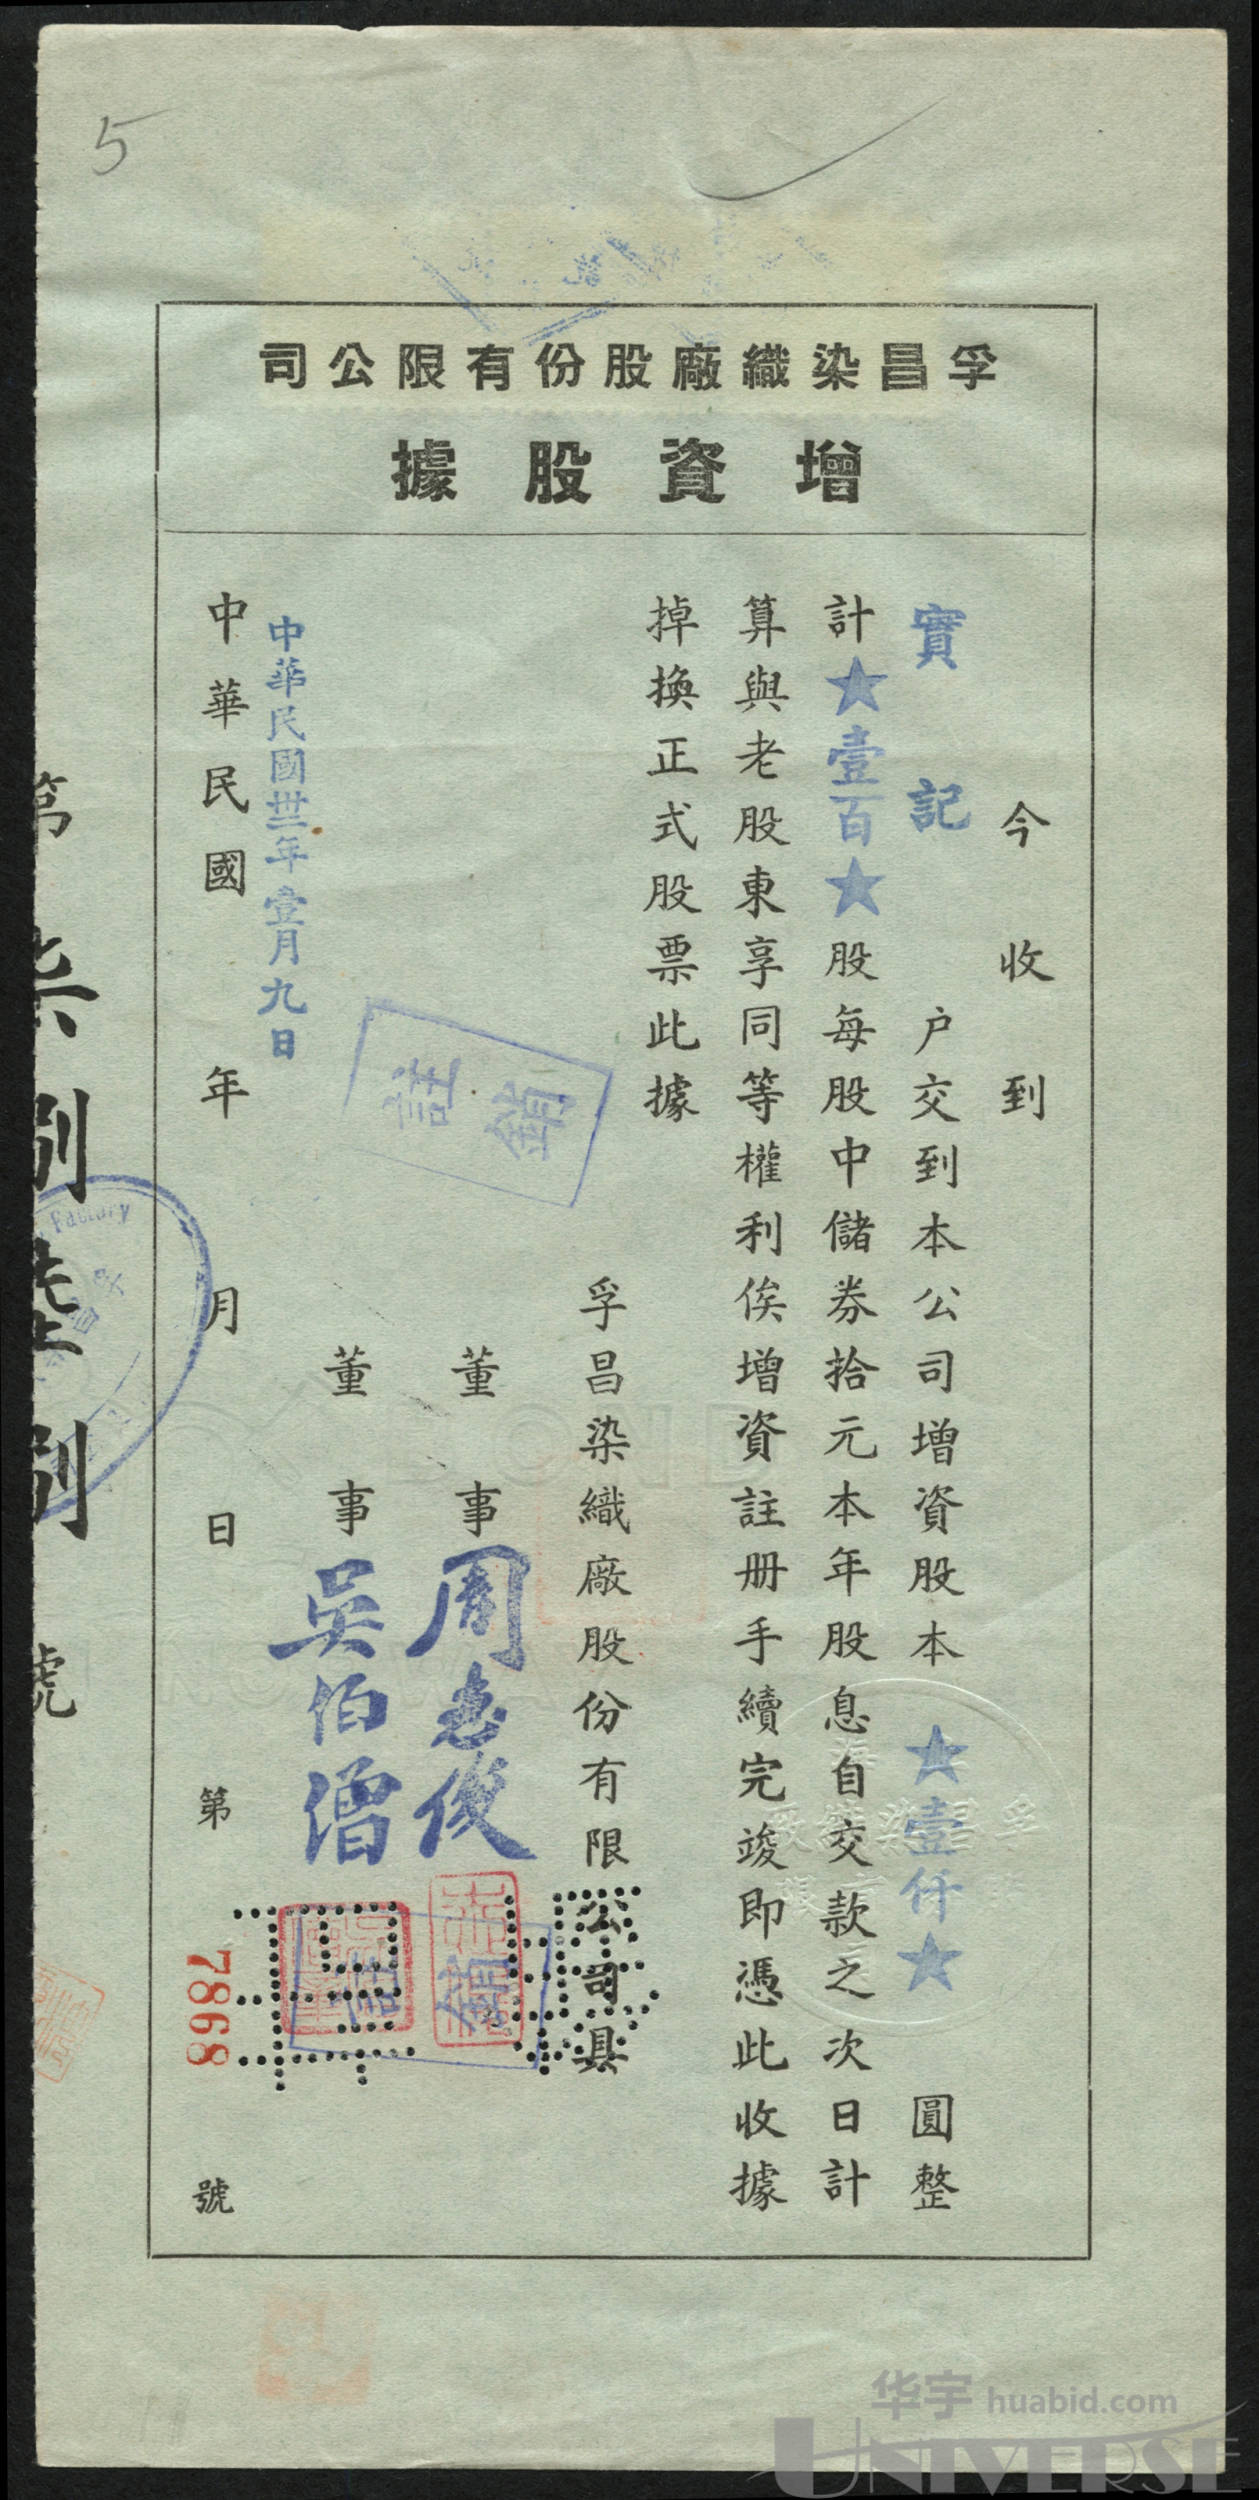 5
孚昌染織廠股份有限公司
增資股據
今收到
實記 户交到本公司增資股本★壹仟★圓整
計★壹百★股每股中儲券拾元本年股息自交款之次日計
算與老股東享同等權利俟增資註册手續完竣即憑此收據
掉換正式股票此據
孚昌染織廠股份有限公司具
董事 周惠俊
董事 吳伯僧
註銷
註銷
中華民國卅三年壹月九日
中華民國 年 月 日 第 7868 號
第柒捌陸捌號
Factory
华宇 huabid.com
UNIVERSE